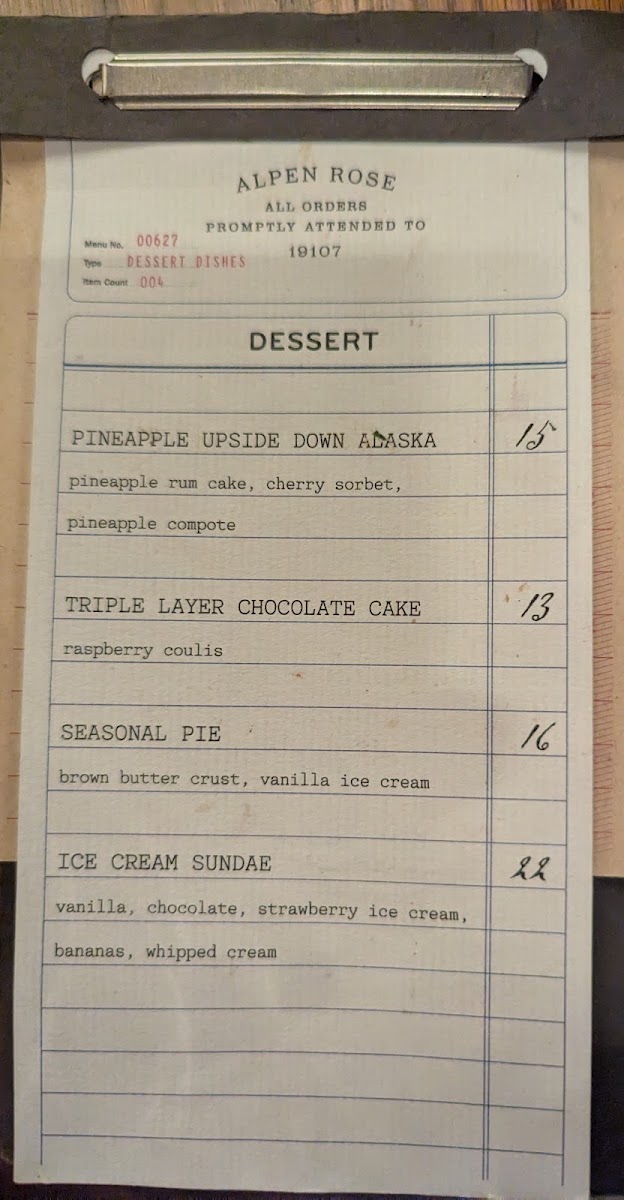 ALPEN ROSE
ALL ORDERS
PROMPTLY ATTENDED TO
19107
Menu No. 00627
Type DESSERT DISHES
Item Count 004
DESSERT
PINEAPPLE UPSIDE DOWN ALASKA 15
pineapple rum cake, cherry sorbet,
pineapple compote
TRIPLE LAYER CHOCOLATE CAKE 13
raspberry coulis
SEASONAL PIE 16
brown butter crust, vanilla ice cream
ICE CREAM SUNDAE 22
vanilla, chocolate, strawberry ice cream,
bananas, whipped cream